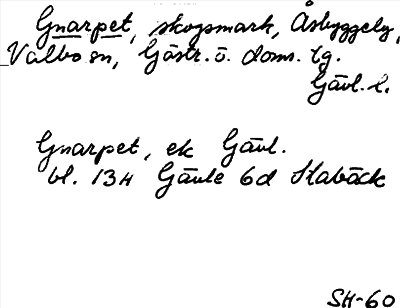 Gnarpet, skogsmark, Åsbyggeby,
Valbo sn, Gästr. ö. doms. tg.
Gävl. l.
Gnarpet, ek Gävl.
bl. 13H Gävle 6d Stabäck
SH-60